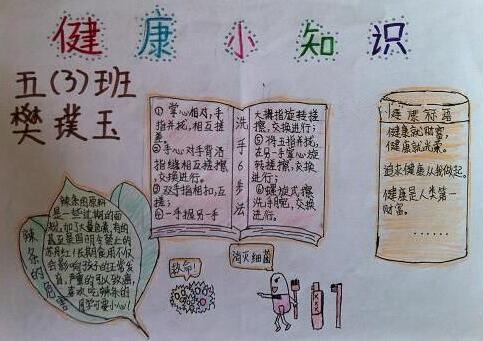 健康小知识
五(3)班
樊璞玉
①掌心相对,手
指并拢,相互搓
擦
②手心对手背沿
指缝相互搓擦,
交换进行。
③双手指相扣,互
搓;
④一手握另一手
洗手6步法
大拇指旋转搓
擦,交换进行;
⑤将五指并拢,
在另一手掌心旋
转搓擦,交换
进行;
⑥螺旋式擦
洗手腕,交换
进行。
健康标语
健康就财富,
健康就光荣。
追求健康从我做起。
健康是人类第一
财富。
......
辣条的危害
辣条的原料
是一些过期的面
粉,加了大量色素,有的
甚至是国明令禁止的
苏丹红!长期食用不仅
会影响孩子的正常发
育,严重的可以致癌,
喜欢吃辣条的
同学可要小心!
救命!
消灭细菌